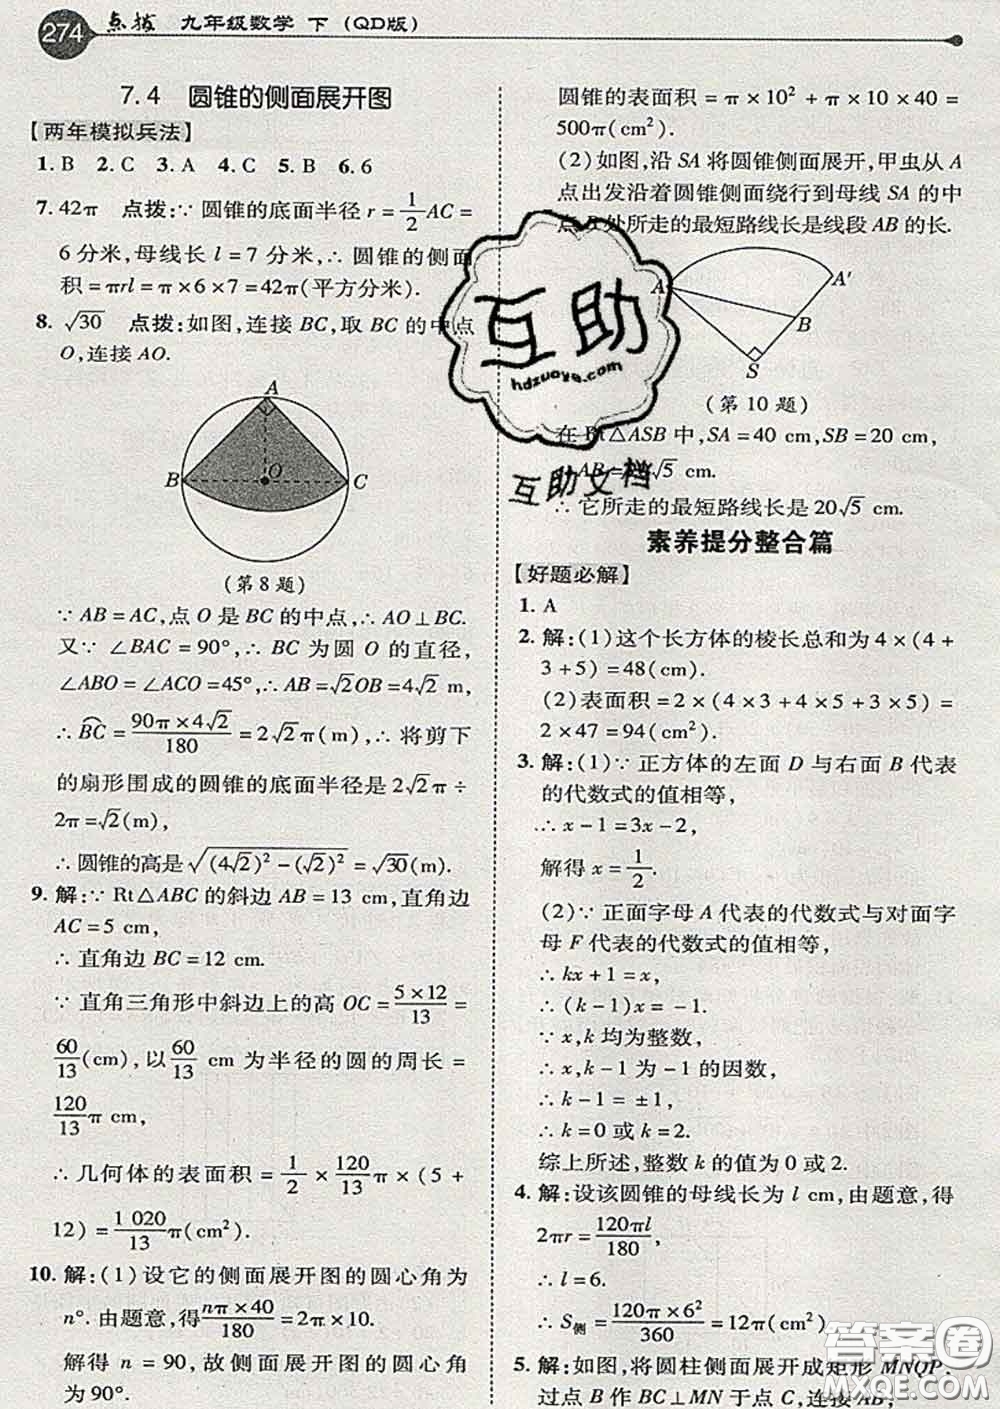 274 点拨 九年级数学 下 (QD版)
7.4 圆锥的侧面展开图
【两年模拟兵法】
1. B 2. C 3. A 4. C 5. B 6. 6
7. 42π 点拨:∵ 圆锥的底面半径 r = 1/2 AC =
6 分米,母线长 l = 7 分米,∴ 圆锥的侧面
积 = πrl = π×6×7 = 42π(平方分米).
8. √30 点拨:如图,连接 BC,取 BC 的中点
O,连接 AO.
A
B
O
C
(第 8 题)
∵ AB = AC,点 O 是 BC 的中点,∴ AO⊥BC.
又∵ ∠BAC = 90°,∴ BC 为圆 O 的直径,
∠ABO = ∠ACO = 45°,∴ AB = √2OB = 4√2 m,
∴ B͡C = (90π×4√2)/180 = 2√2π(m),∴ 将剪下
的扇形围成的圆锥的底面半径是 2√2π÷
2π = √2(m),
∴ 圆锥的高是 √((4√2)² − (√2)²) = √30(m).
9. 解:∵ Rt△ABC 的斜边 AB = 13 cm,直角边
AC = 5 cm,
∴ 直角边 BC = 12 cm.
∵ 直角三角形中斜边上的高 OC = (5×12)/13 =
60/13(cm),以 60/13 cm 为半径的圆的周长 =
120/13 π cm,
∴ 几何体的表面积 = 1/2 × 120/13 π × (5 +
12) = 1 020/13 π(cm²).
10. 解:(1)设它的侧面展开图的圆心角为
n°. 由题意,得 (nπ×40)/180 = 2π×10.
解得 n = 90,故侧面展开图的圆心角
为 90°.
圆锥的表面积 = π×10² + π×10×40 =
500π(cm²).
(2)如图,沿 SA 将圆锥侧面展开,甲虫从 A
点出发沿着圆锥侧面绕行到母线 SA 的中
点 B 处所走的最短路线长是线段 AB 的长.
A
A′
B
S
(第 10 题)
在 Rt△ASB 中,SA = 40 cm,SB = 20 cm,
AB = 20√5 cm.
∴ 它所走的最短路线长是 20√5 cm.
素养提分整合篇
【好题必解】
1. A
2. 解:(1)这个长方体的棱长总和为 4×(4+
3+5) = 48(cm).
(2)表面积 = 2×(4×3+4×5+3×5) =
2×47 = 94(cm²).
3. 解:(1)∵ 正方体的左面 D 与右面 B 代表
的代数式的值相等,
∴ x−1 = 3x−2,
解得 x = 1/2.
(2)∵ 正面字母 A 代表的代数式与对面字
母 F 代表的代数式的值相等,
∴ kx+1 = x,
∴ (k−1)x = −1.
∵ x,k 均为整数,
∴ k−1 为 −1 的因数,
∴ k−1 = ±1,
∴ k = 0 或 k = 2.
综上所述,整数 k 的值为 0 或 2.
4. 解:设该圆锥的母线长为 l cm,由题意,得
2πr = 120πl/180,
∴ l = 6.
∴ S侧 = (120π×6²)/360 = 12π(cm²).
5. 解:如图,将圆柱侧面展开成矩形 MNQP.
过点 B 作 BC⊥MN 于点 C,连接 AB,
互助
hdzuoye.com
互助文档
答案圈
MXQE.COM